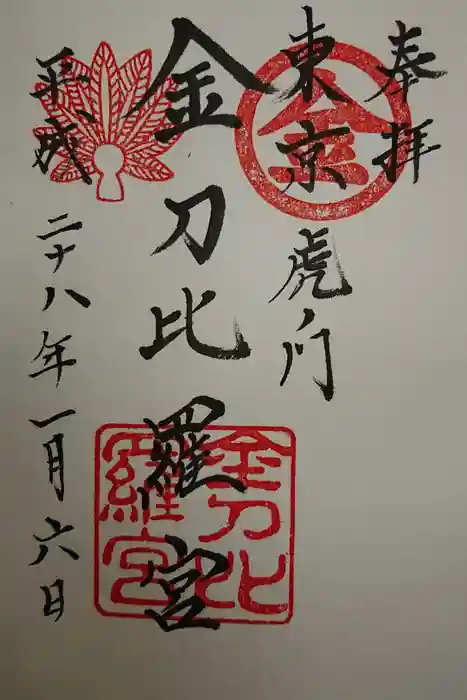 奉拝
東京虎ノ門
金刀比羅宮
平成二十八年一月六日
金
金刀比
羅宮